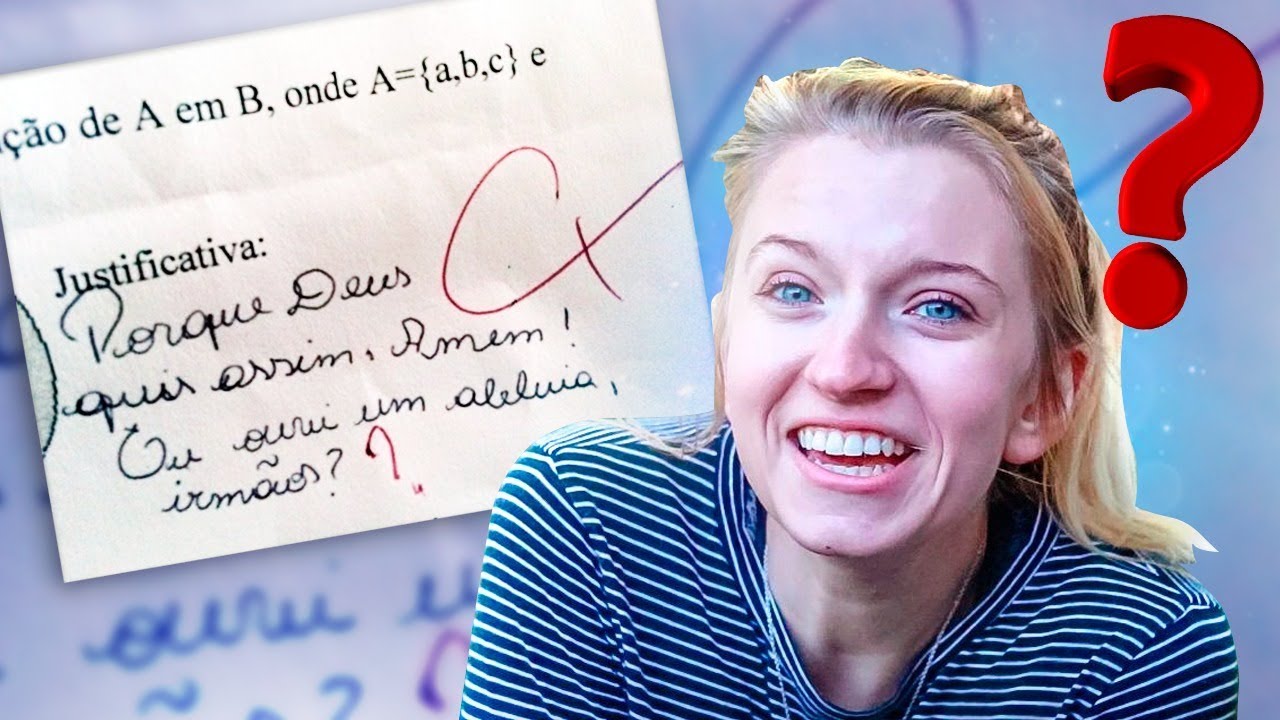 ção de A em B, onde A={a,b,c} e
Justificativa:
Porque Deus
quis assim. Amem!
Eu ouvi um aleluia,
irmãos? ?
?
ouvi u